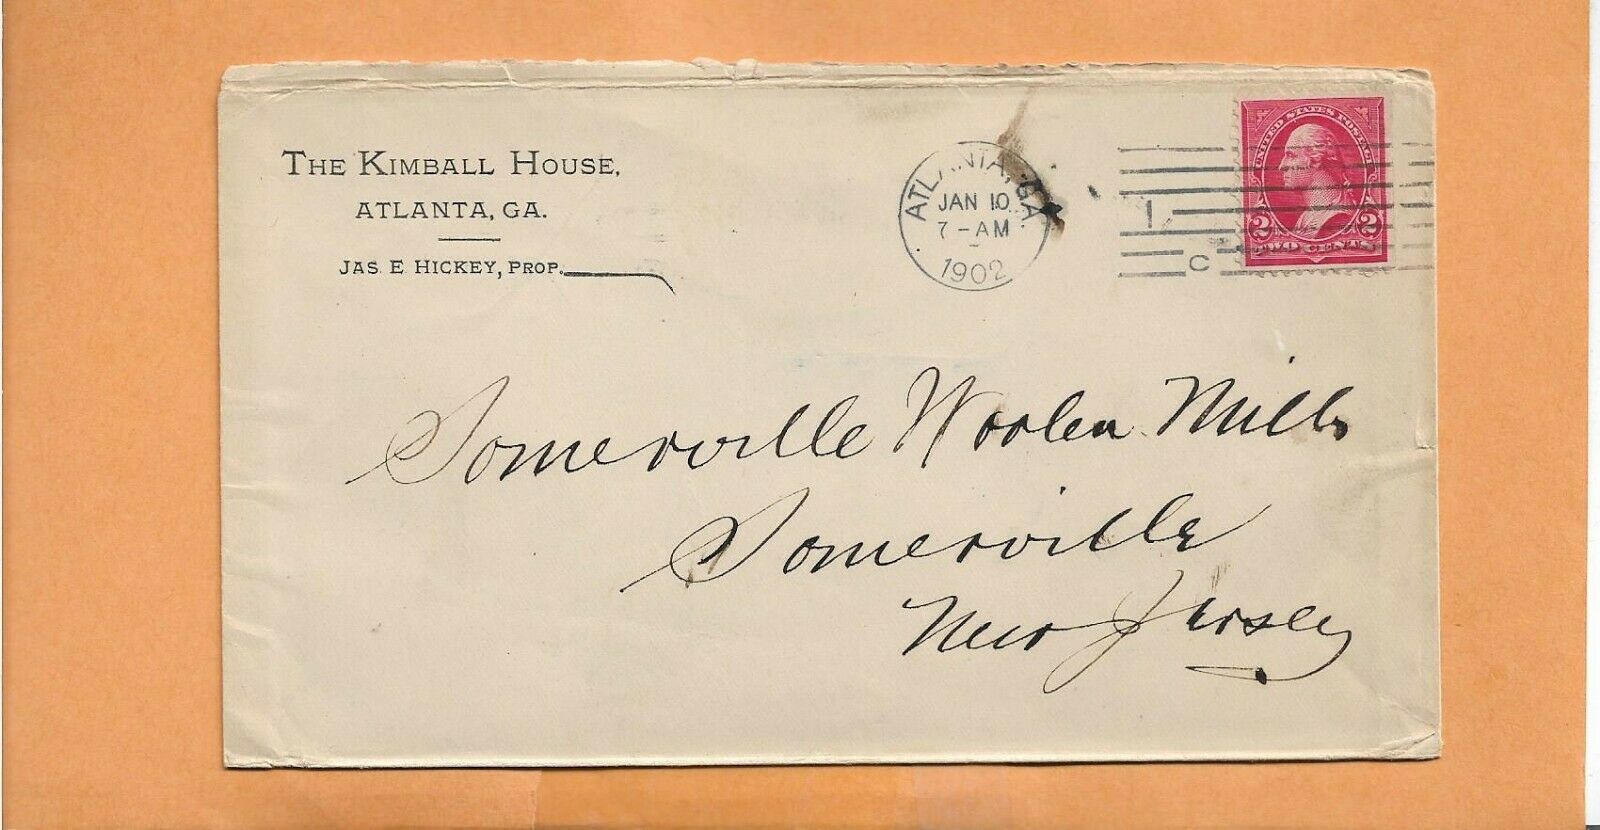 THE KIMBALL HOUSE,
ATLANTA, GA.
JAS. E. HICKEY, PROP.
ATLANTA, GA.
JAN 10
7-AM
1902
1
C
UNITED STATES POSTAGE
2 2
TWO CENTS
Somerville Woolen Mills
Somerville
New Jersey